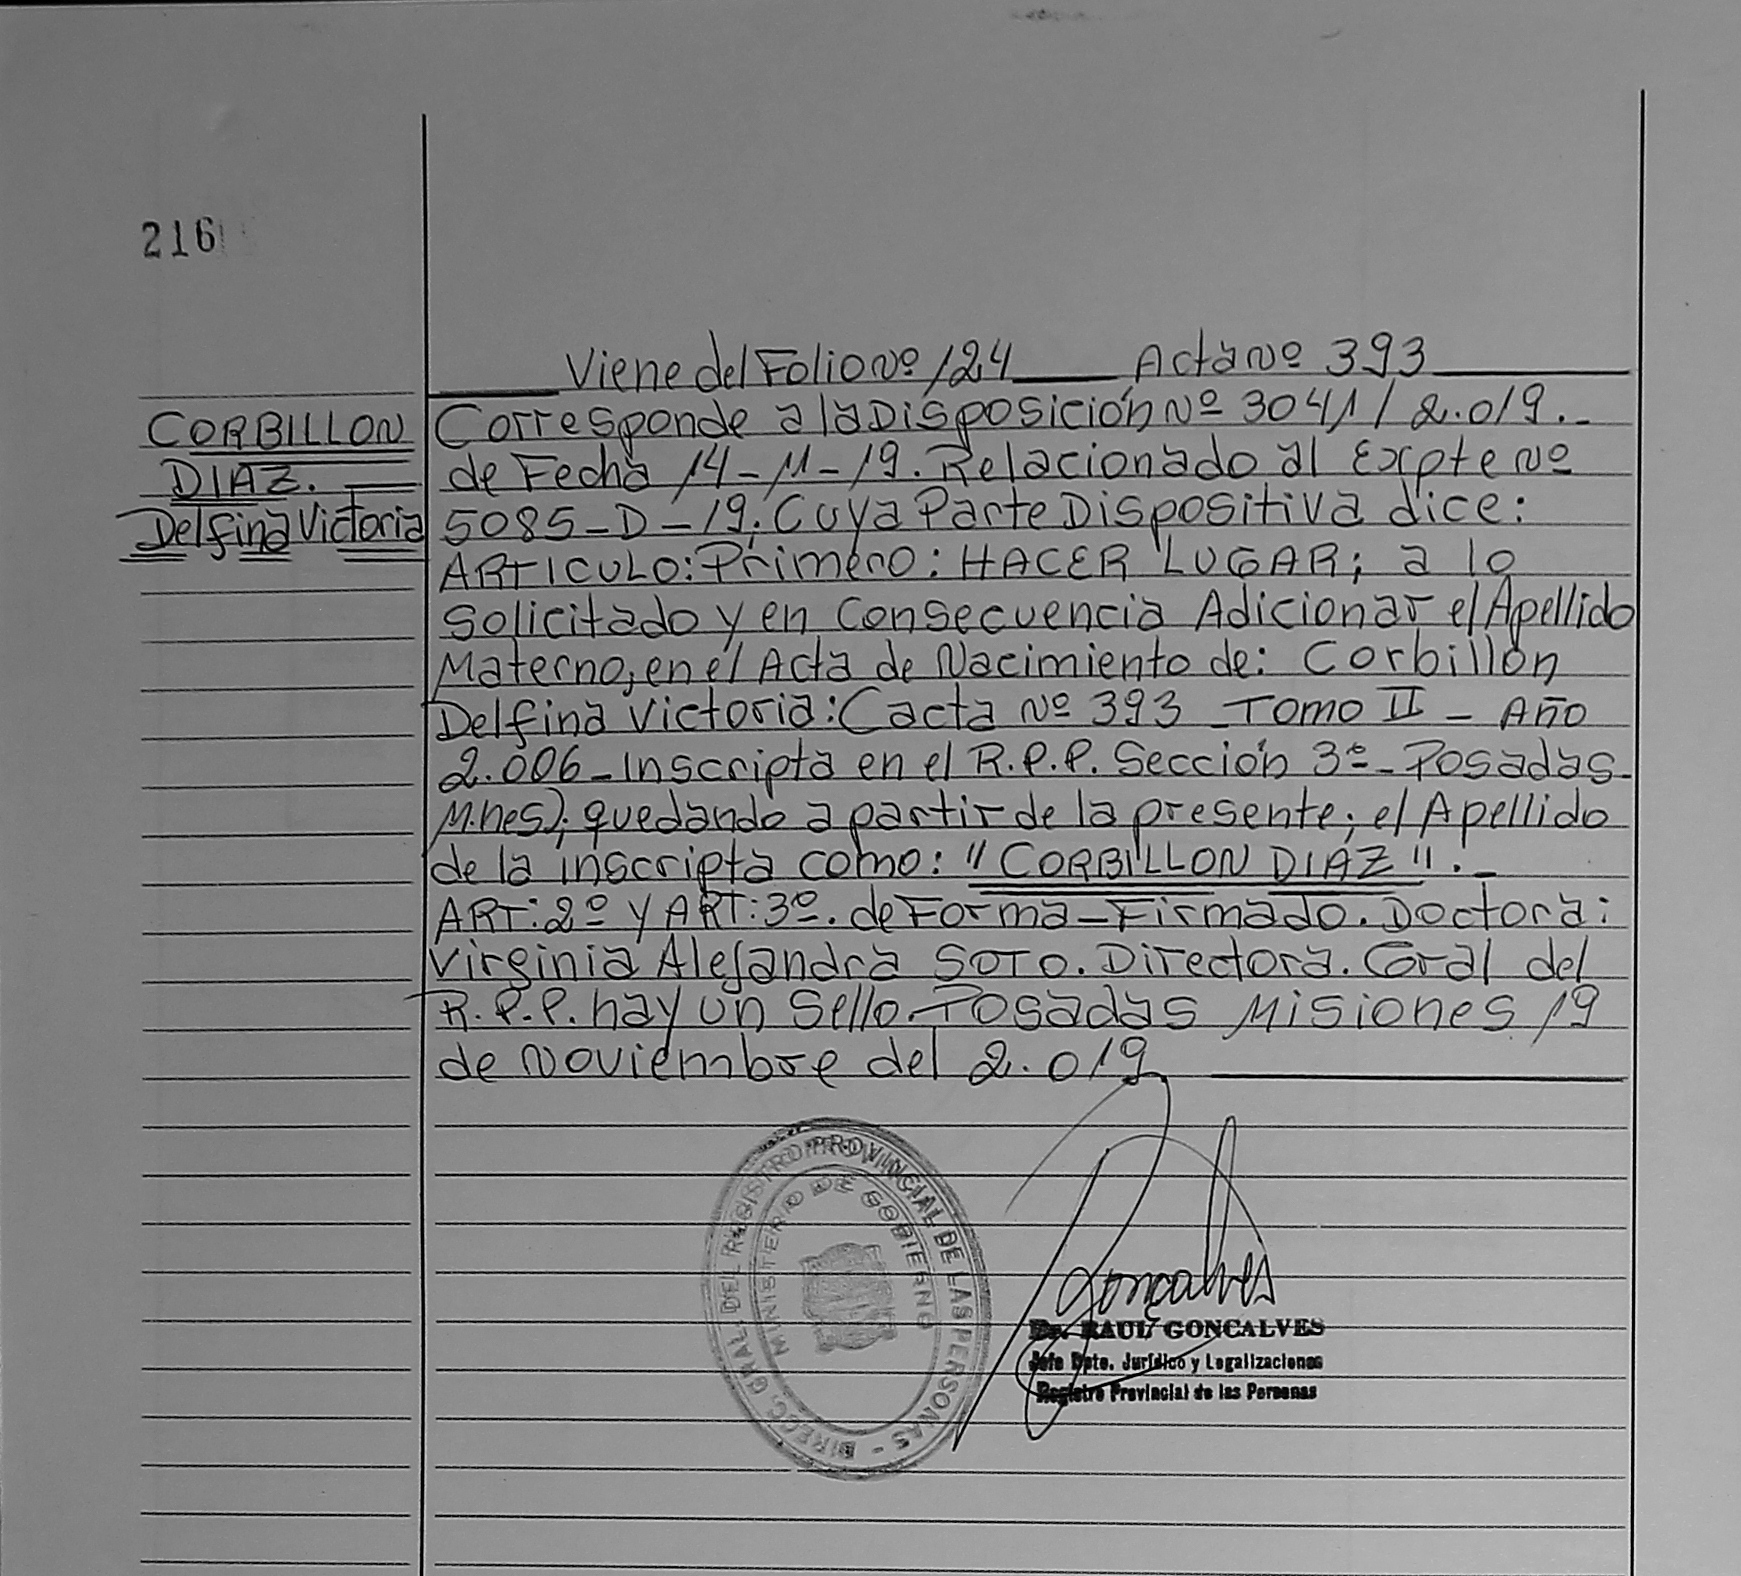 216
Viene del Folio Nº 124 Acta Nº 393
CORBILLON
DIAZ.
Delfina Victoria
Corresponde a la Disposición Nº 3041 / 2.019.-
de Fecha 14-11-19. Relacionado al Expte Nº
5085-D-19. Cuya Parte Dispositiva dice:
ARTICULO: Primero: HACER LUGAR; a lo
Solicitado y en Consecuencia Adicionar el Apellido
Materno, en el Acta de Nacimiento de: Corbillón
Delfina Victoria: (acta Nº 393 Tomo II - Año
2.006 - Inscripta en el R.P.P. Sección 3º - Posadas.
M.nes); quedando a partir de la presente; el Apellido
de la inscripta como: "CORBILLON DIAZ".-
ART: 2º y ART: 3º. de Forma - Firmado. Doctora:
Virginia Alejandra SOTO. Directora. Gral del
R.P.P. hay un Sello. Posadas Misiones 19
de Noviembre del 2.019
DIRECC. GRAL. DEL REGISTRO PROVINCIAL DE LAS PERSONAS -
MINISTERIO DE GOBIERNO
Goncalves
Dr. RAUL GONCALVES
Jefe Dpto. Jurídico y Legalizaciones
Registro Provincial de las Personas